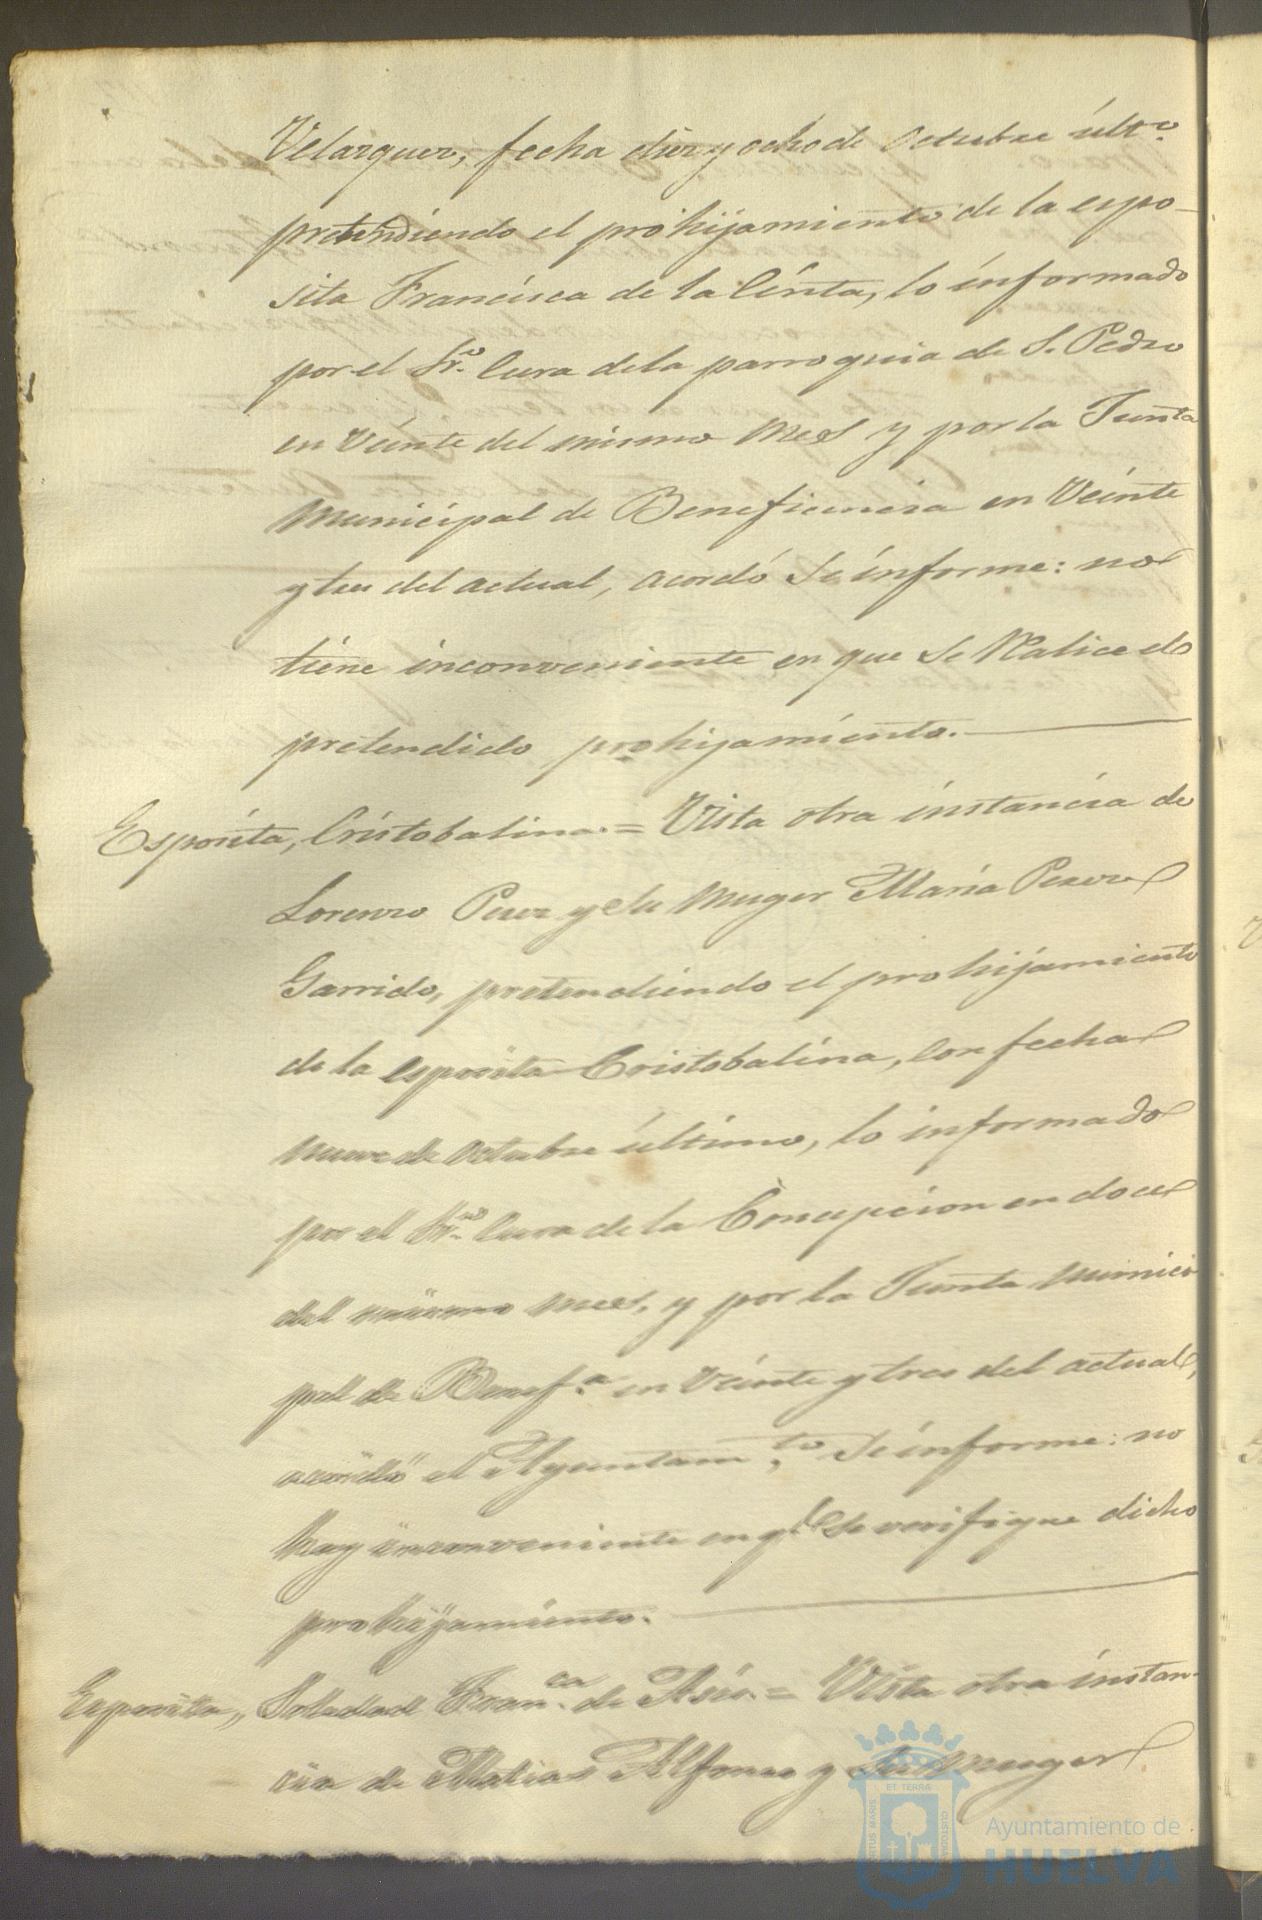 Velazquez, fecha diez y ocho de Octubre últ.o
pretendiendo el prohijamiento de la espo-
sita Francisca de la Cinta, lo informado
por el Sr. Cura de la parroquia de S. Pedro
en Veinte del mismo Mes y por la Junta
Municipal de Beneficencia en Veinte
y tres del actual, acordó Se informe: no
tiene inconveniente en que Se Realice el
pretendido prohijamiento.
Esposita, Cristobalina.= Vista otra instancia de
Lorenzo Perez y Su Muger María Perez
Garrido, pretendiendo el prohijamiento
de la esposita Cristobalina, con fecha
nueve de Octubre último, lo informado
por el Sr. Cura de la Concepcion en doce
del mismo mes, y por la Junta Munici
pal de Benef.a en Veinte y tres del actual,
acordó el Ayuntam.to Se informe: no
hay inconveniente en q.e Se verifique dicho
prohijamiento.
Esposita, Soledad Fran.ca de Asis.= Vista otra instan-
cia de Matias Alfonso y Su Muger
ET TERRA
PORTUS MARIS
CUSTODIA
Ayuntamiento de
HUELVA